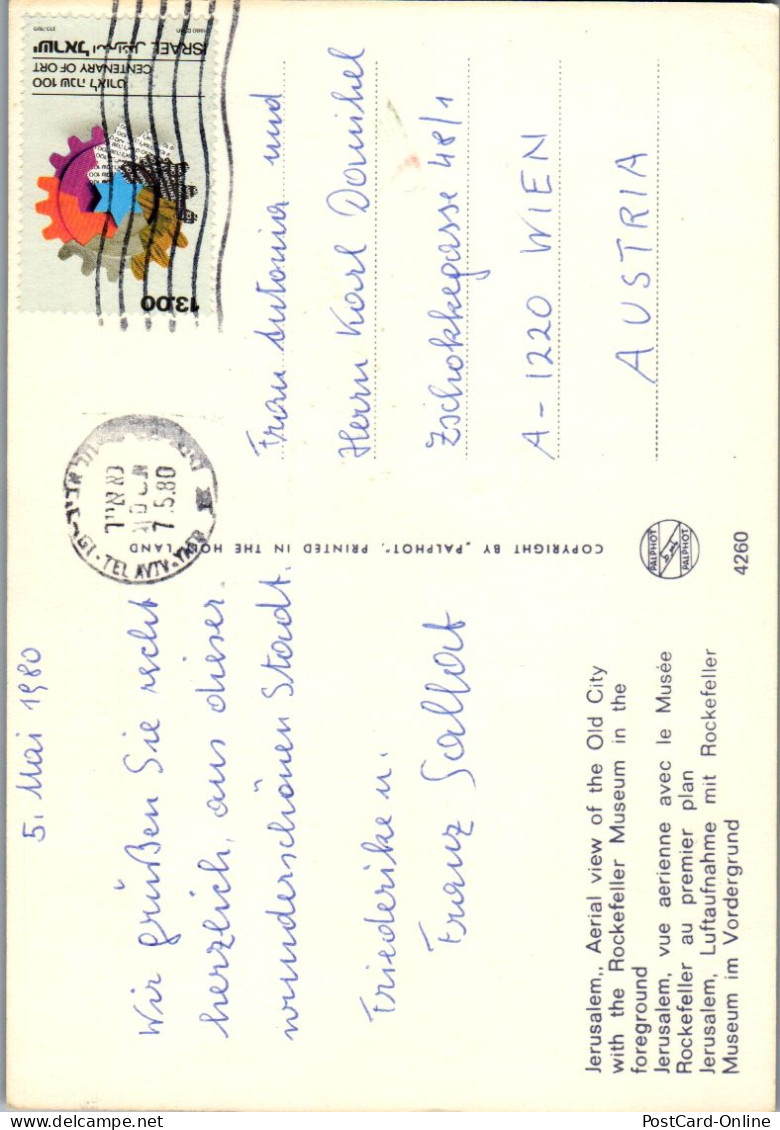 5. Mai 1980
Wir grüßen Sie recht
herzlich, aus dieser
wunderschönen Stadt.
Friederike u.
Franz
Jerusalem,, Aerial view of the Old City
with the Rockefeller Museum in the
foreground
Jerusalem, vue aerienne avec le Musée
Rockefeller au premier plan
Jerusalem, Luftaufnahme mit Rockefeller
Museum im Vordergrund
COPYRIGHT BY „PALPHOT". PRINTED IN THE HOLY LAND
PALPHOT
PALPHOT
4260
ישראל اسرائيل ISRAEL
100 שנה לאורט
CENTENARY OF ORT
13.00
7.5.80
TEL AVIV-YAFO
Frau Antonia und
Herrn Karl
Zschokkegasse 48/1
A-1220 WIEN
AUSTRIA
PostCard-Online